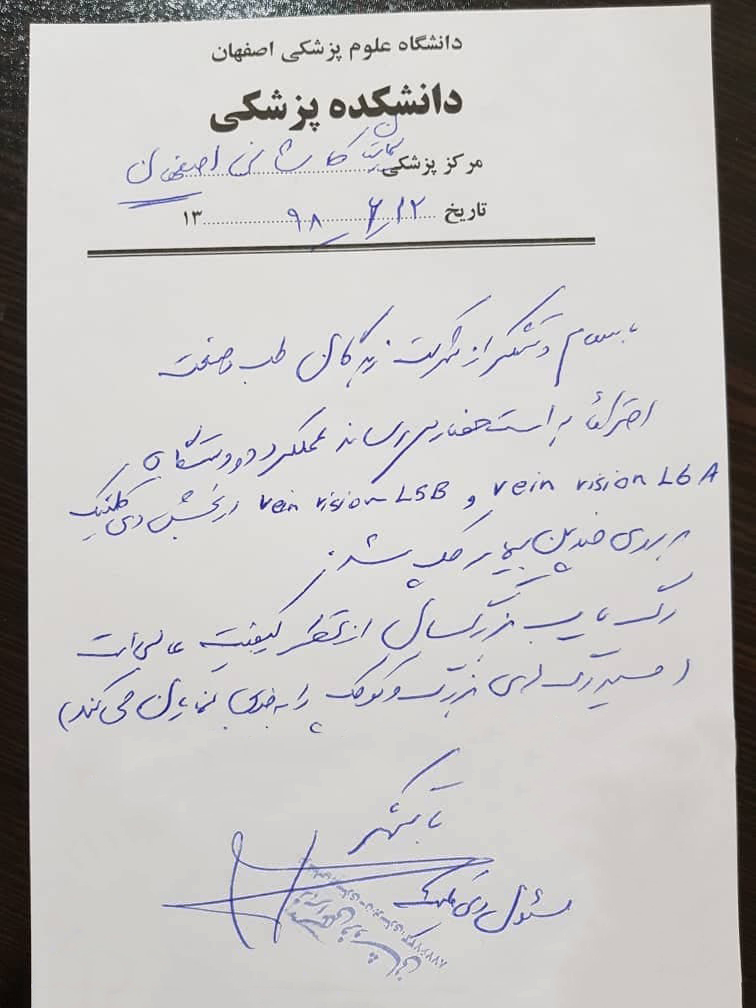 دانشگاه علوم پزشکی اصفهان
دانشکده پزشکی
مرکز پزشکی کاشانی اصفهان
تاریخ ۹۸/۶/۱۲ ۱۳
با سلام و تشکر از شرکت زندگان طب صنعت
احتراماً به استحضار می رساند عملکرد دو دستگاه
vein vision L6A و vein vision L5B در بخش دی کلینیک
بر روی چندین بیمار چک شد.
رگ یاب بزرگسال از نظر کیفیت عالی است
(مسیر رگ های بزرگ و کوچک را به خوبی نمایان می کند)
با تشکر
مسئول دی کلینیک